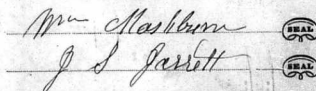 Wm Mashburn SEAL
J S Jarrett SEAL